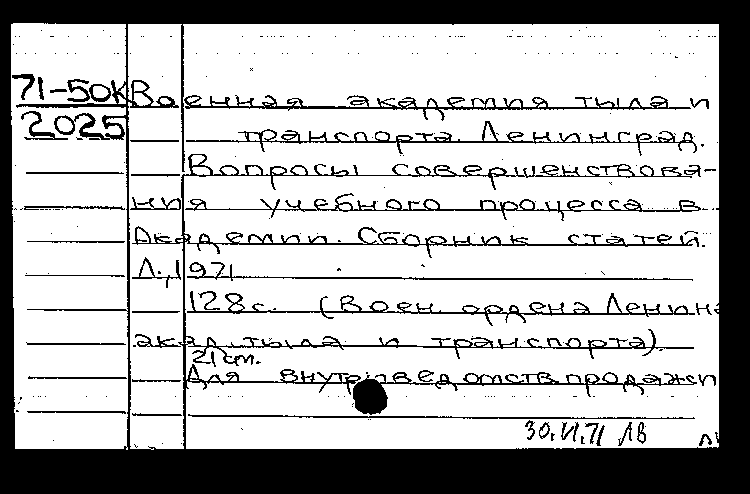 71-50К Военная академия тыла и
2025 транспорта. Ленинград.
Вопросы совершенствова-
ния учебного процесса в
Академии. Сборник статей.
Л., 1971
128с. (Воен. ордена Ленина
акад. тыла и транспорта).
21 cm.
Для внутриведомств. продажи
30.VI.71 ЛВ